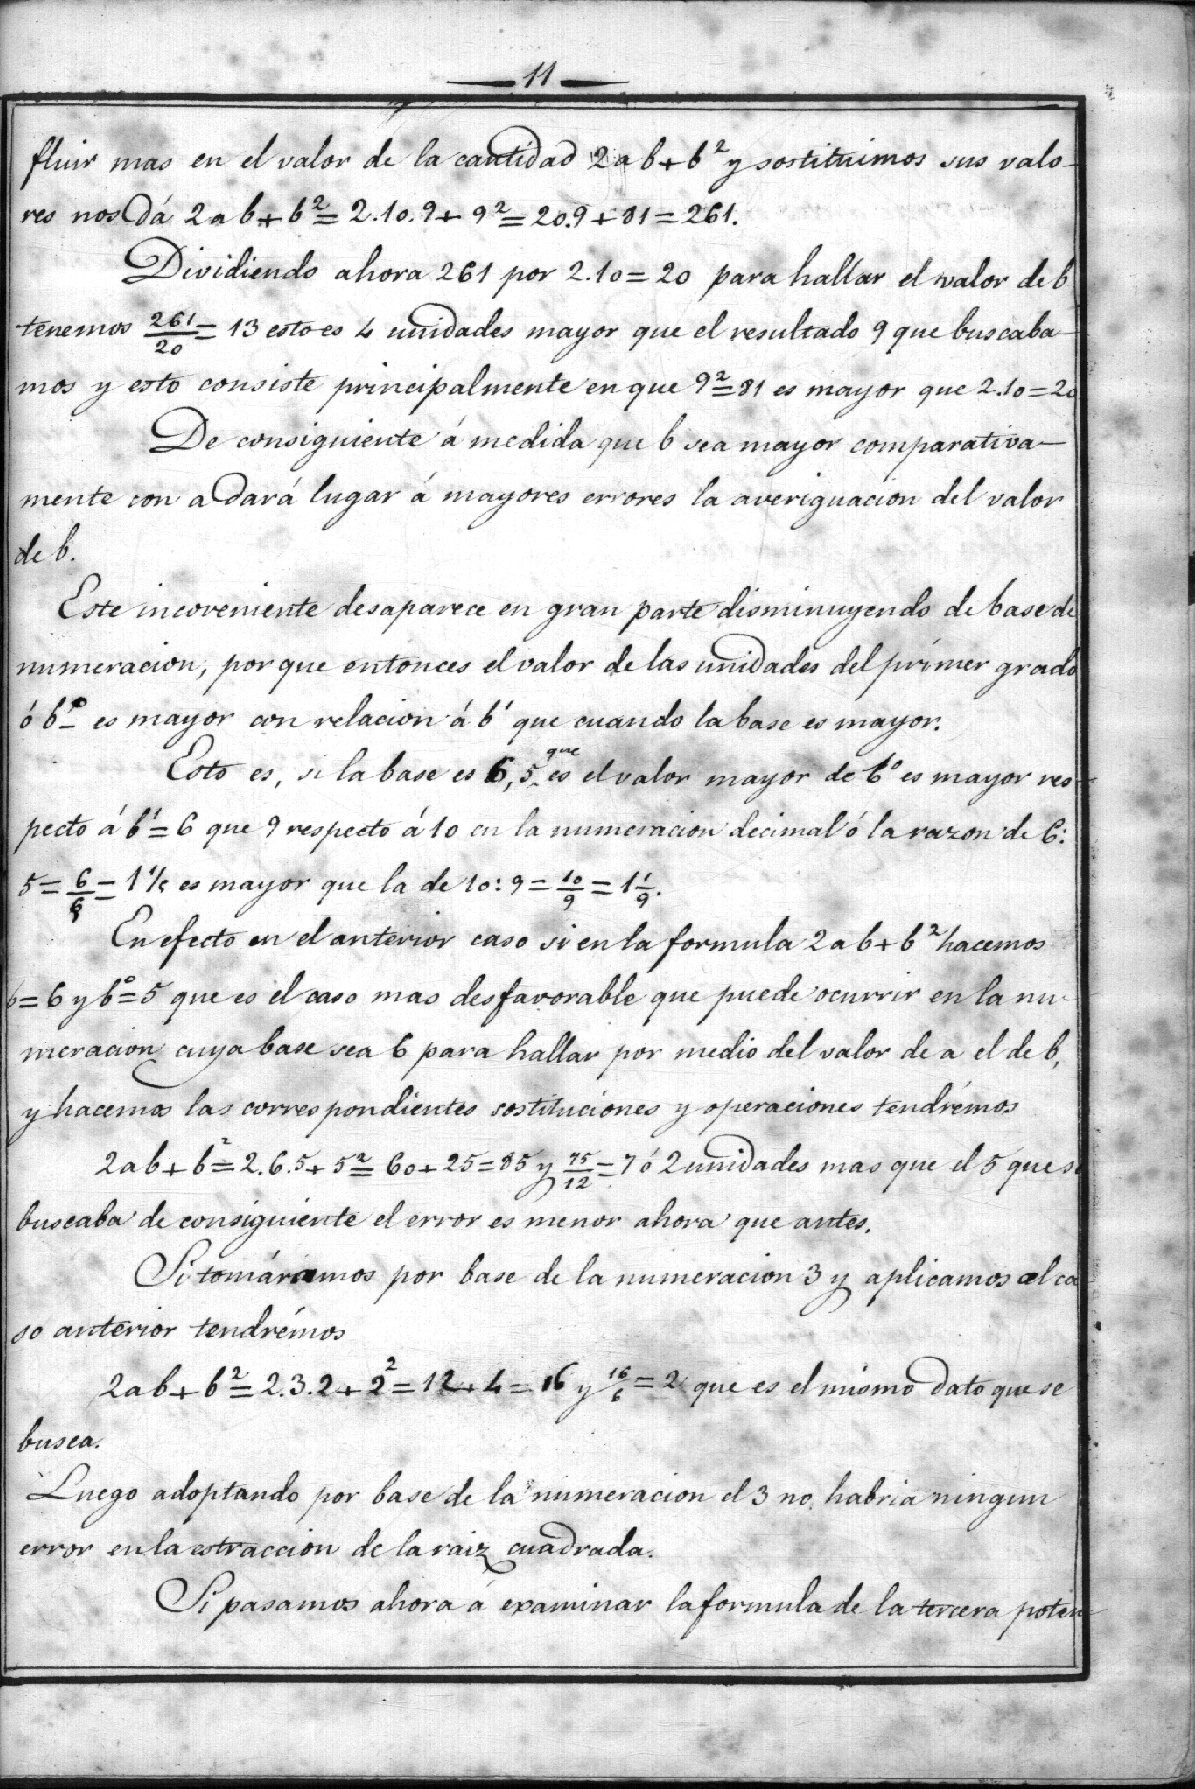 11
fluir mas en el valor de la cantidad 2ab+b² y sostituimos sus valo-
res nos dá 2ab+b²=2.10.9+9²=20.9+81=261.
Dividiendo ahora 261 por 2.10=20 para hallar el valor de b
tenemos 261/20=13 esto es 4 unidades mayor que el resultado 9 que buscaba-
mos y esto consiste principalmente en que 9²=81 es mayor que 2.10=20
De consiguiente á medida que b sea mayor comparativa-
mente con a dará lugar á mayores errores la averiguacion del valor
de b.
Este incoveniente desaparece en gran parte disminuyendo de base de
numeracion, porque entonces el valor de las unidades del primer grado
ó b⁰ es mayor con relacion á b' que cuando la base es mayor.
Esto es, si la base es 6, 5 que es el valor mayor de b⁰ es mayor res-
pecto á b'=6 que 9 respecto á 10 en la numeracion decimal ó la razon de 6:
5=6/5=1 1/5 es mayor que la de 10:9=10/9=1 1/9.
En efecto en el anterior caso si en la formula 2ab+b² hacemos
b=6 y b⁰=5 que es el caso mas desfavorable que puede ocurrir en la nu-
meracion cuya base sea 6 para hallar por medio del valor de a el de b,
y hacemos las correspondientes sostituciones y operaciones tendrémos
2ab+b²=2.6.5+5²=60+25=85 y 75/12=7 ó 2 unidades mas que el 5 que se
buscaba de consiguiente el error es menor ahora que antes.
Si tomáramos por base de la numeracion 3 y aplicamos al ca
so anterior tendrémos
2ab+b²=2.3.2+2²=12+4=16 y 16/6=2 que es el mismo dato que se
busca.
Luego adoptando por base de la numeracion el 3 no habria ningun
error en la estraccion de la raiz cuadrada.
Si pasamos ahora á examinar la formula de la tercera poten-